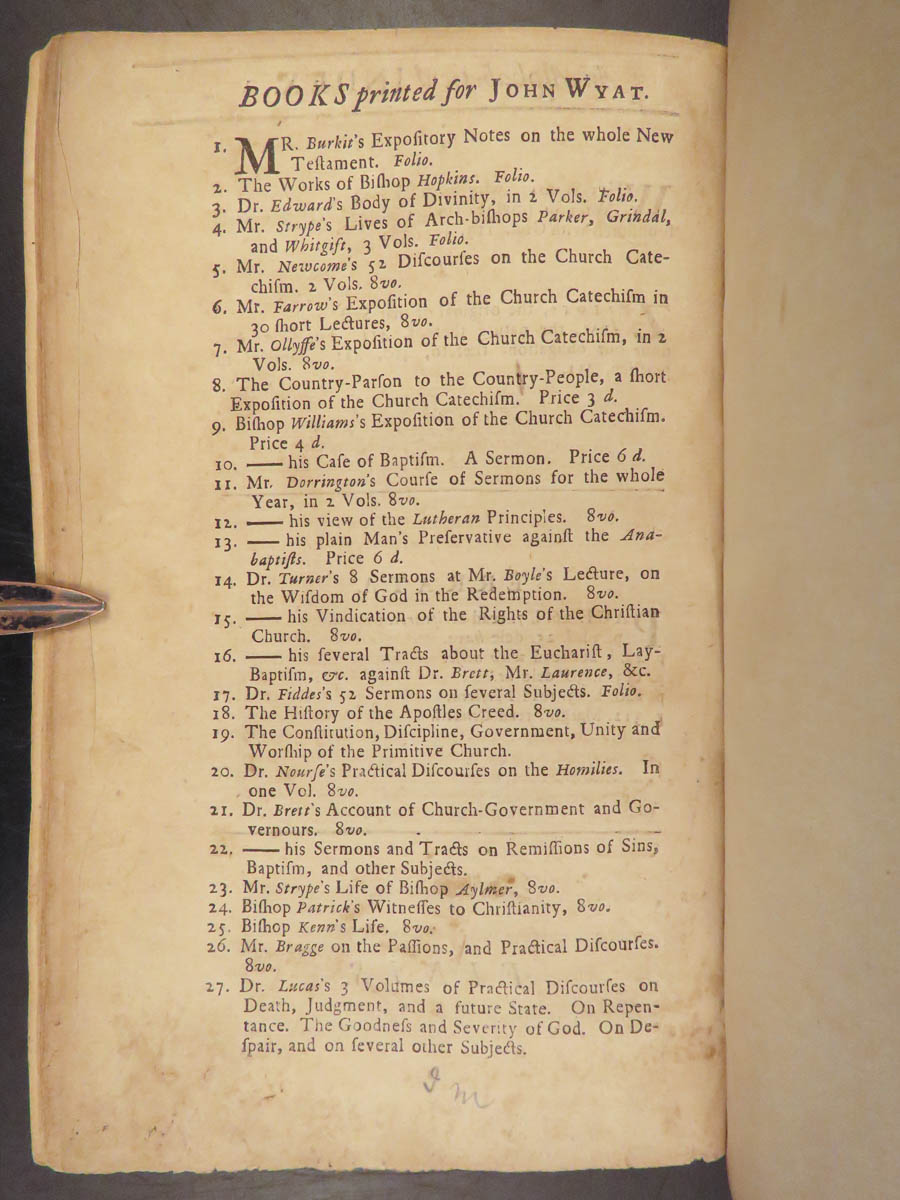 BOOKS printed for JOHN WYAT.
1. MR. Burkit's Expoſitory Notes on the whole New
Teſtament. Folio.
2. The Works of Biſhop Hopkins. Folio.
3. Dr. Edward's Body of Divinity, in 2 Vols. Folio.
4. Mr. Strype's Lives of Arch-biſhops Parker, Grindal,
and Whitgift, 3 Vols. Folio.
5. Mr. Newcome's 52 Diſcourſes on the Church Cate-
chiſm. 2 Vols. 8vo.
6. Mr. Farrow's Expoſition of the Church Catechiſm in
30 ſhort Lectures, 8vo.
7. Mr. Ollyffe's Expoſition of the Church Catechiſm, in 2
Vols. 8vo.
8. The Country-Parſon to the Country-People, a ſhort
Expoſition of the Church Catechiſm. Price 3 d.
9. Biſhop Williams's Expoſition of the Church Catechiſm.
Price 4 d.
10. —— his Caſe of Baptiſm. A Sermon. Price 6 d.
11. Mr. Dorrington's Courſe of Sermons for the whole
Year, in 2 Vols. 8vo.
12. —— his view of the Lutheran Principles. 8vo.
13. —— his plain Man's Preſervative againſt the Ana-
baptiſts. Price 6 d.
14. Dr. Turner's 8 Sermons at Mr. Boyle's Lecture, on
the Wiſdom of God in the Redemption. 8vo.
15. —— his Vindication of the Rights of the Chriſtian
Church. 8vo.
16. —— his ſeveral Tracts about the Euchariſt, Lay-
Baptiſm, &c. againſt Dr. Brett, Mr. Laurence, &c.
17. Dr. Fiddes's 52 Sermons on ſeveral Subjects. Folio.
18. The Hiſtory of the Apoſtles Creed. 8vo.
19. The Conſtitution, Diſcipline, Government, Unity and
Worſhip of the Primitive Church.
20. Dr. Nourſe's Practical Diſcourſes on the Homilies. In
one Vol. 8vo.
21. Dr. Brett's Account of Church-Government and Go-
vernours. 8vo.
22. —— his Sermons and Tracts on Remiſſions of Sins,
Baptiſm, and other Subjects.
23. Mr. Strype's Life of Biſhop Aylmer, 8vo.
24. Biſhop Patrick's Witneſſes to Chriſtianity, 8vo.
25. Biſhop Kenn's Life. 8vo.
26. Mr. Bragge on the Paſſions, and Practical Diſcourſes.
8vo.
27. Dr. Lucas's 3 Volumes of Practical Diſcourſes on
Death, Judgment, and a future State. On Repen-
tance. The Goodneſs and Severity of God. On De-
ſpair, and on ſeveral other Subjects.